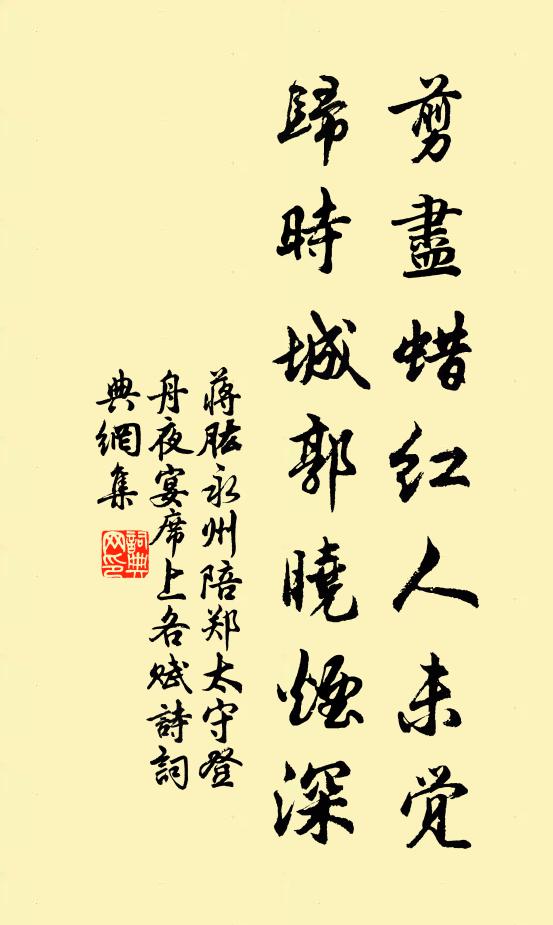 剪盡蜡红人未觉
歸時城郭曉煙深
蒋肱永州陪郑太守登
舟夜宴席上各赋詩詞
典網集
詞典
网印